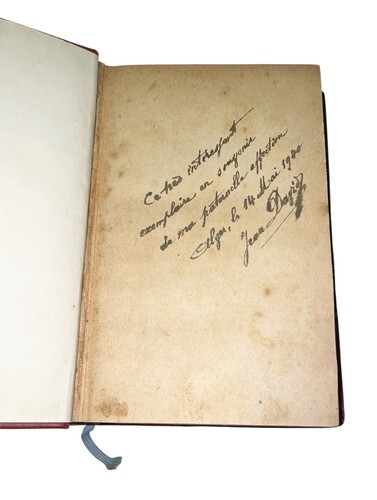 Ce très intéressant
exemplaire en souvenir
de ma paternelle affection
Alger, le 14 Mai 1930
Jean